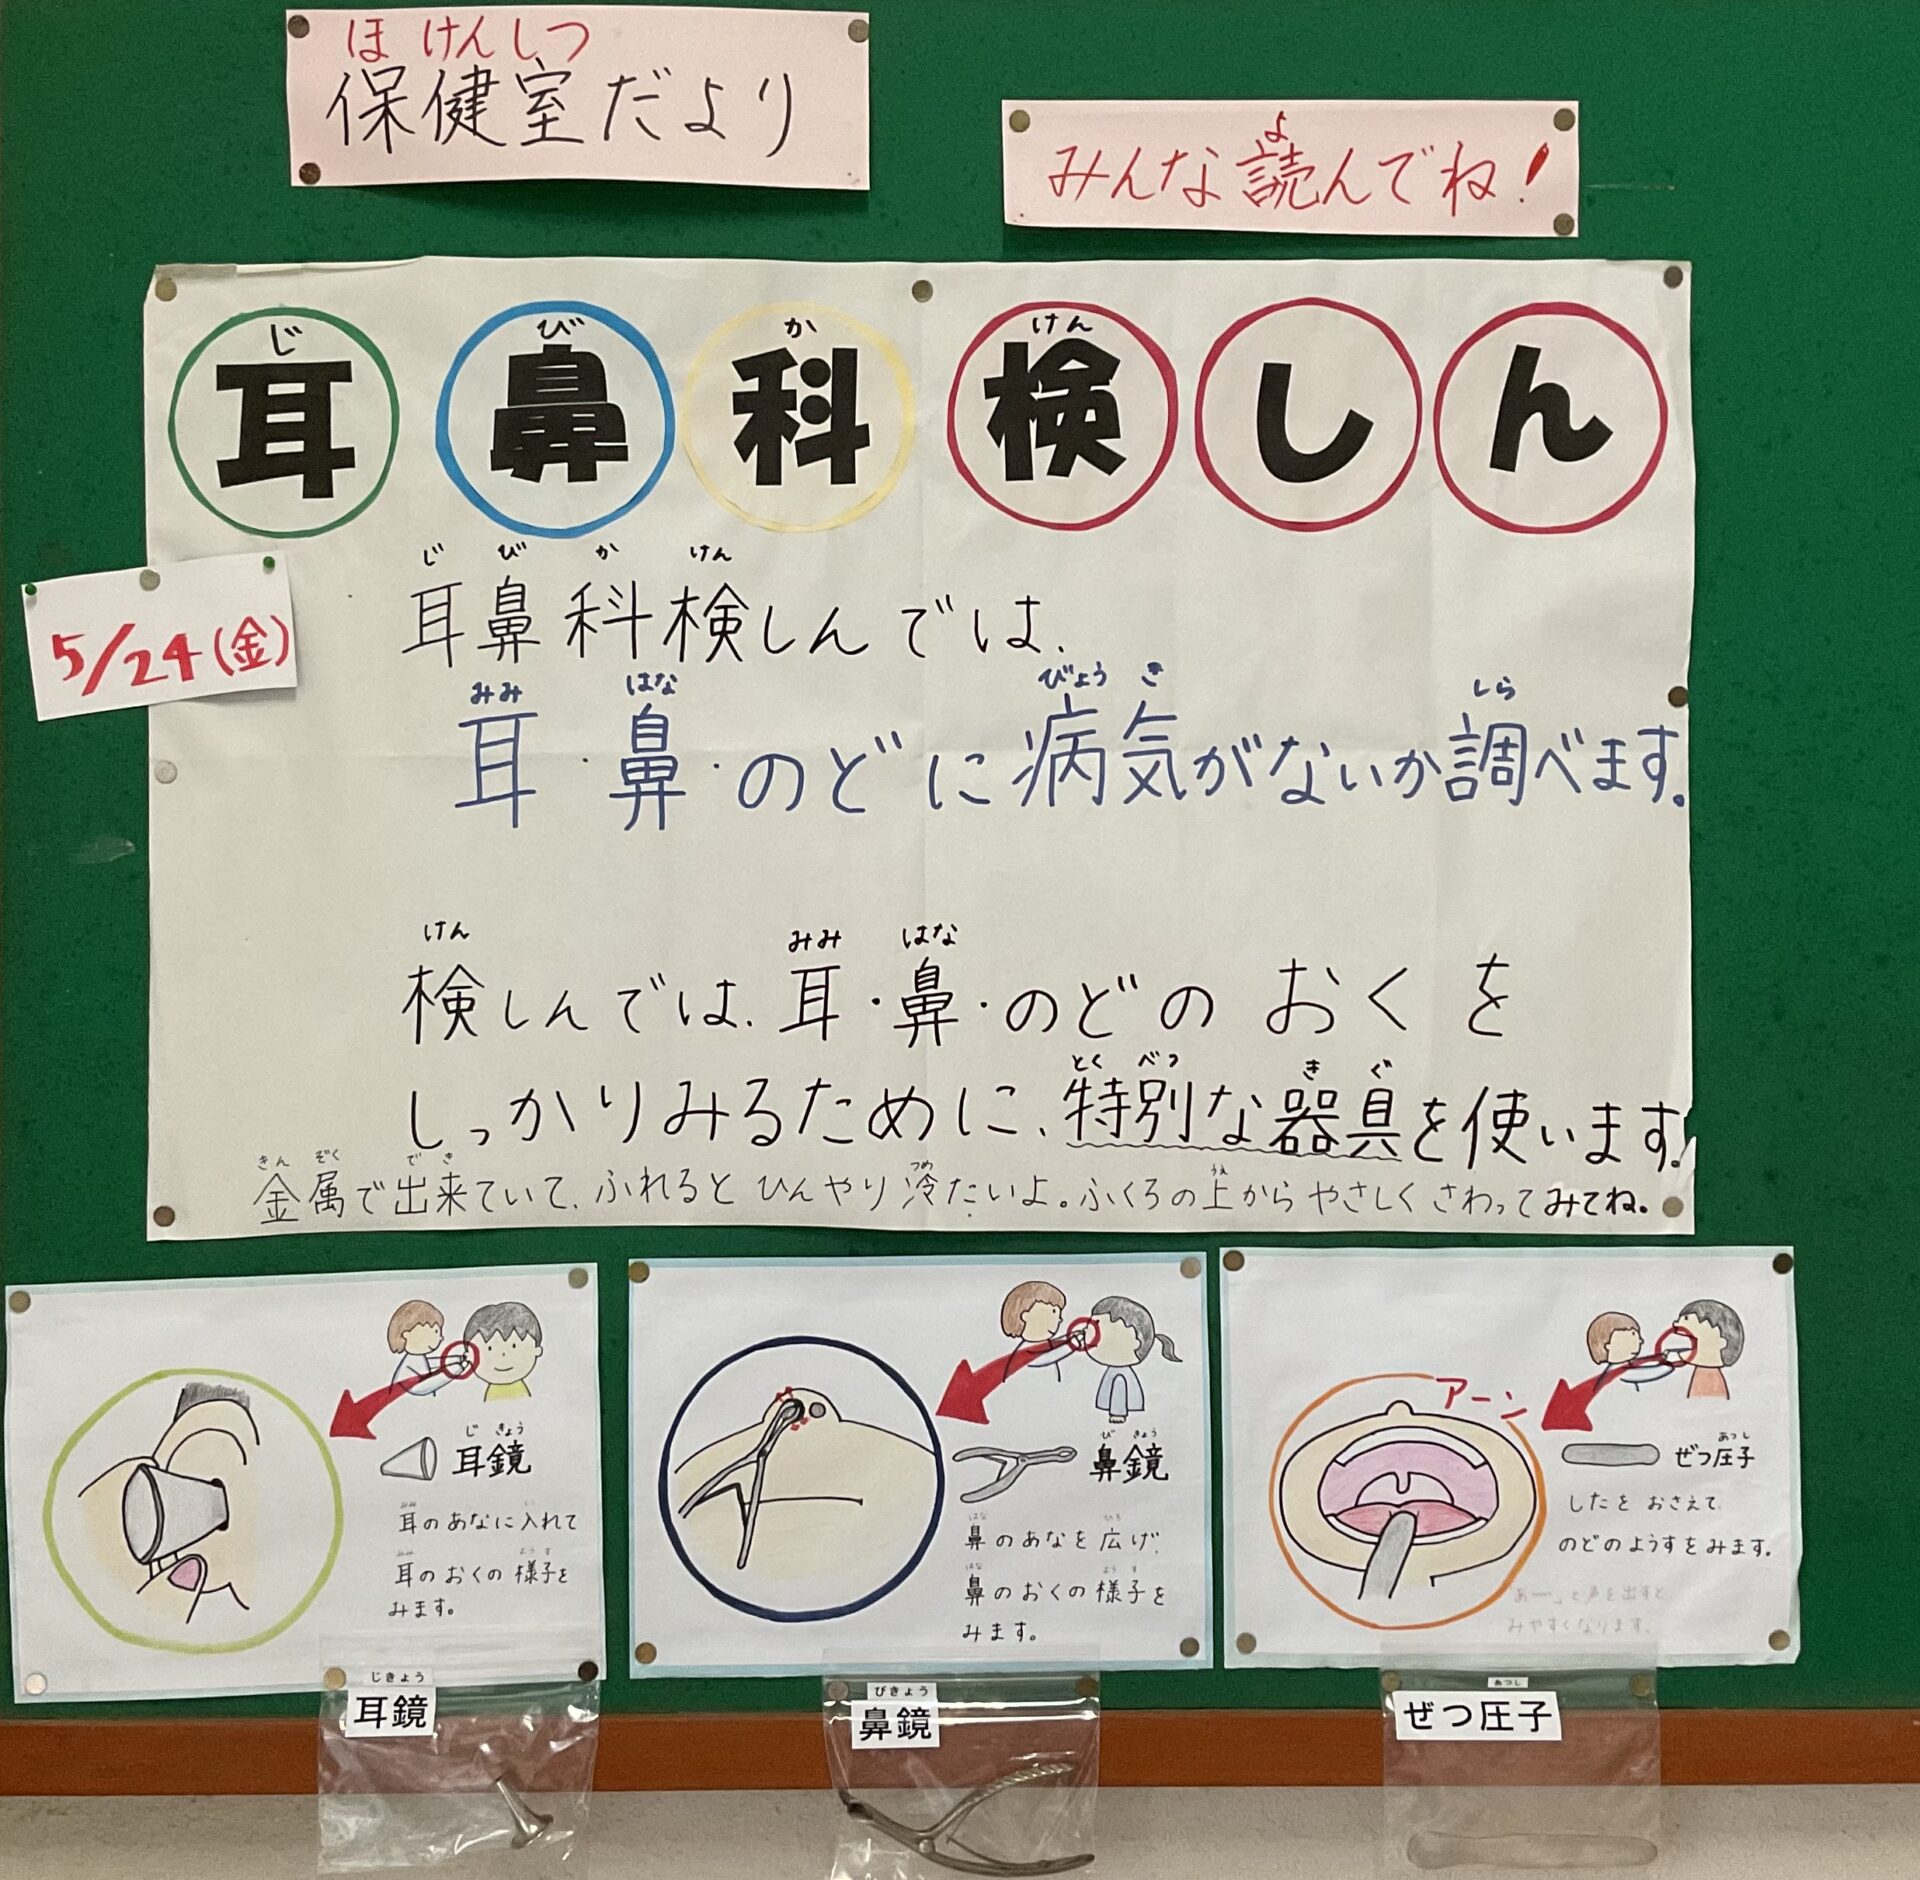 ほけんしつ
保健室だより
よ
みんな読んでね!
じ び か けん
耳鼻科検しん
5/24(金)
じ び か けん
耳鼻科検しんでは、
みみ はな びょう き しら
耳・鼻・のどに病気がないか調べます。
けん みみ はな
検しんでは、耳・鼻・のどの おくを
とく べつ き ぐ
しっかりみるために、特別な器具を使います。
きん ぞく で き つめ うえ
金属で出来ていて、ふれると ひんやり冷たいよ。ふくろの上から やさしく さわってみてね。
じ きょう
耳鏡
みみ い
耳のあなに入れて
みみ よう す
耳のおくの様子を
みます。
び きょう
鼻鏡
はな ひろ
鼻のあなを広げ、
はな よう す
鼻のおくの様子を
みます。
アーン
あつ し
ぜつ圧子
したを おさえて
のどのようすをみます。
あー、と声を出すと
みやすくなります。
じきょう
耳鏡
びきょう
鼻鏡
あつし
ぜつ圧子